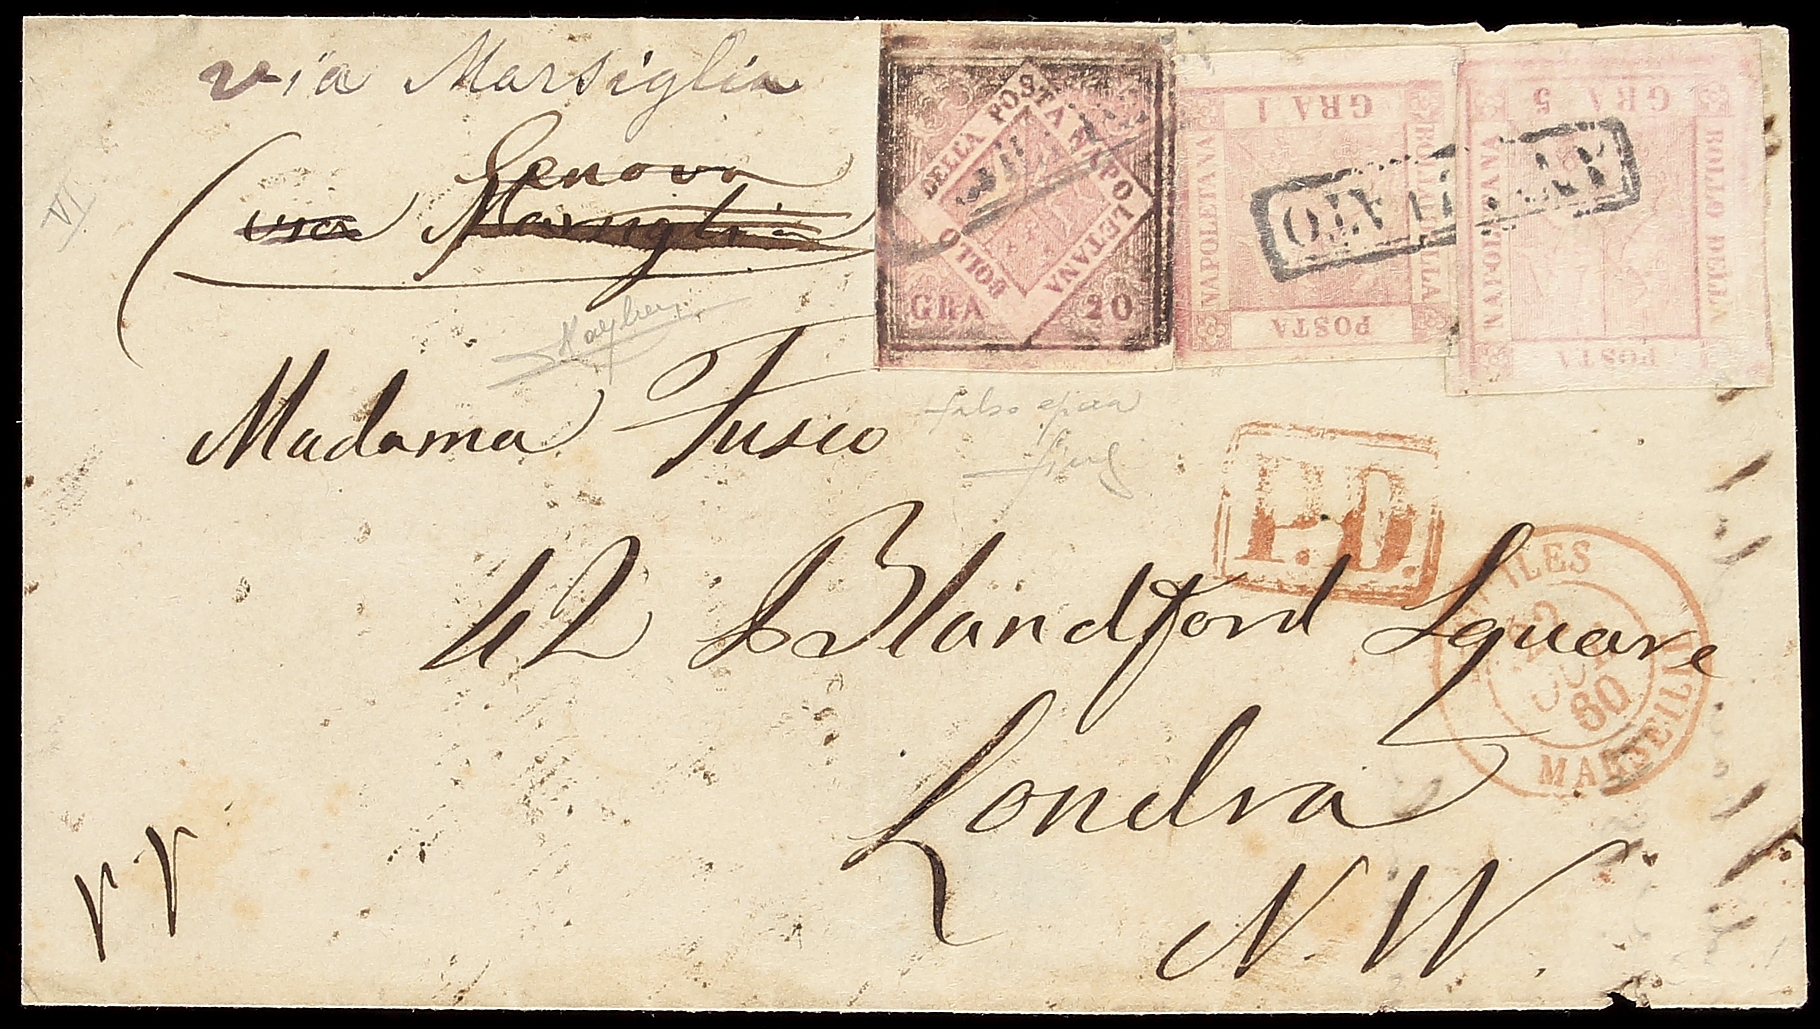 via Marsiglia
Genova
(via Marsiglia
VI
Madama Fusco
42 Blandford Square
Londra
N. W.
BOLLO DELLA POSTA NAPOLETANA
GRA 20
GRA 1
NAPOLETANA
BOLLO DELLA
POSTA
GRA 5
NAPOLETANA
BOLLO DELLA
POSTA
ANNULLATO
ANNULLATO
falso epoca
P.D.
22
60
MARSEILLE